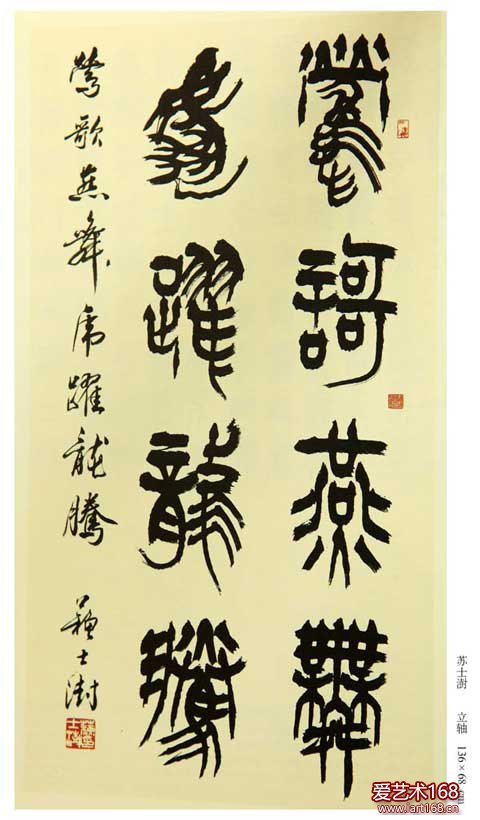 鶯謌燕舞
虎躍龍騰
鶯歌燕舞虎躍龍騰 蘇士澍
苏士澍 立轴 136×68 cm
爱艺术168
www.art168.cn